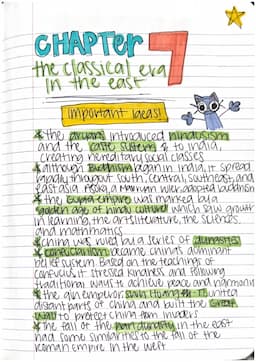 CHAPTER 7
the classical era
in the east
important ideas!
*the aryans introduced hinduism
and the caste system to india,
creating hereditary social classes
*although Buddhism began in india, it spread
rapidly throughout south, central, southeast, and
east asia. Asoka, a Mauryan ruler adopted buddhism
*the Gupta empire was marked by a
golden age of hindu culture which saw growth
in learning, the arts, literature, the sciences
and mathmatics
*china was ruled by a series of dynasties
*confucianism became china's dominant
belief system. Based on the teachings of
confucius it stressed kindness and following
traditional ways to achieve peace and harmony
*the qin emperor united
distant parts of china and built the Great
Wall to protect china from invaders
*the fall of the han dynasty in the east
had some similarities to the fall of the
roman empire in the west